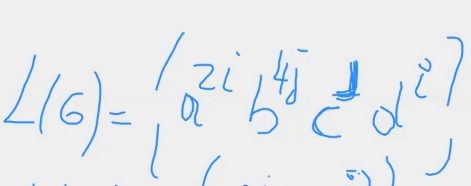 L(G) = { a^{2i} b^{4j} c^{j} d^{i} }